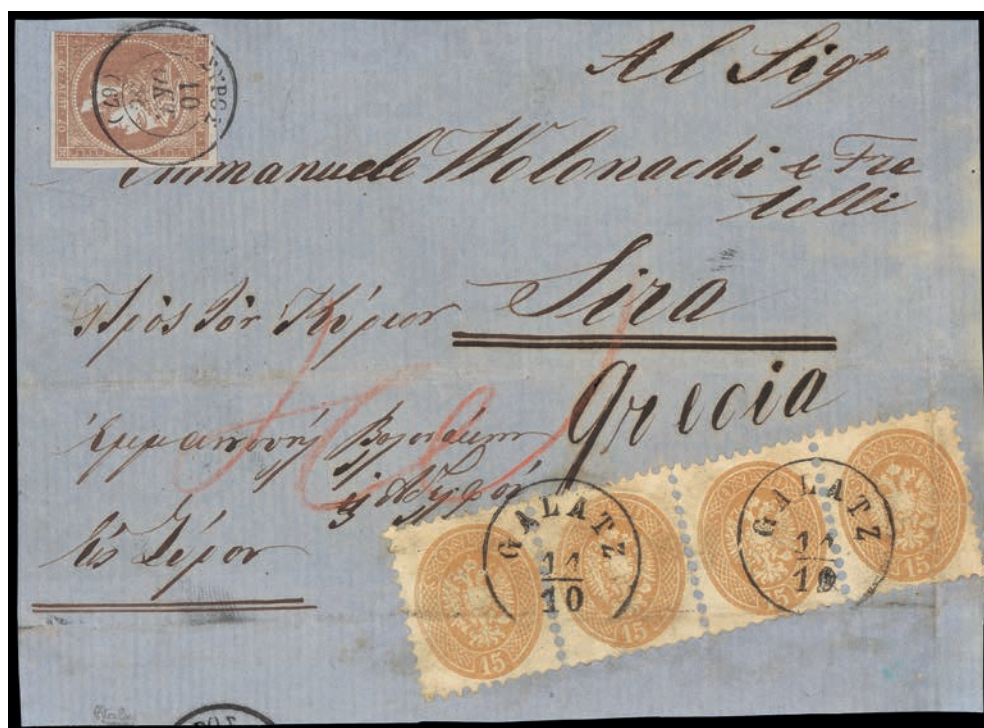 Al Sigr
Emmanuele Wolonachi & Fra
telli
Sira
Grecia
Πρὸς τὸν Κύριον
Ἐμμανουὴλ Βολονάκην
& Ἀδελφόν
εἰς Σύρον
ΣΥΡΟΣ
10
GALATZ
11
10
GALATZ
11
10
15
15
15
15